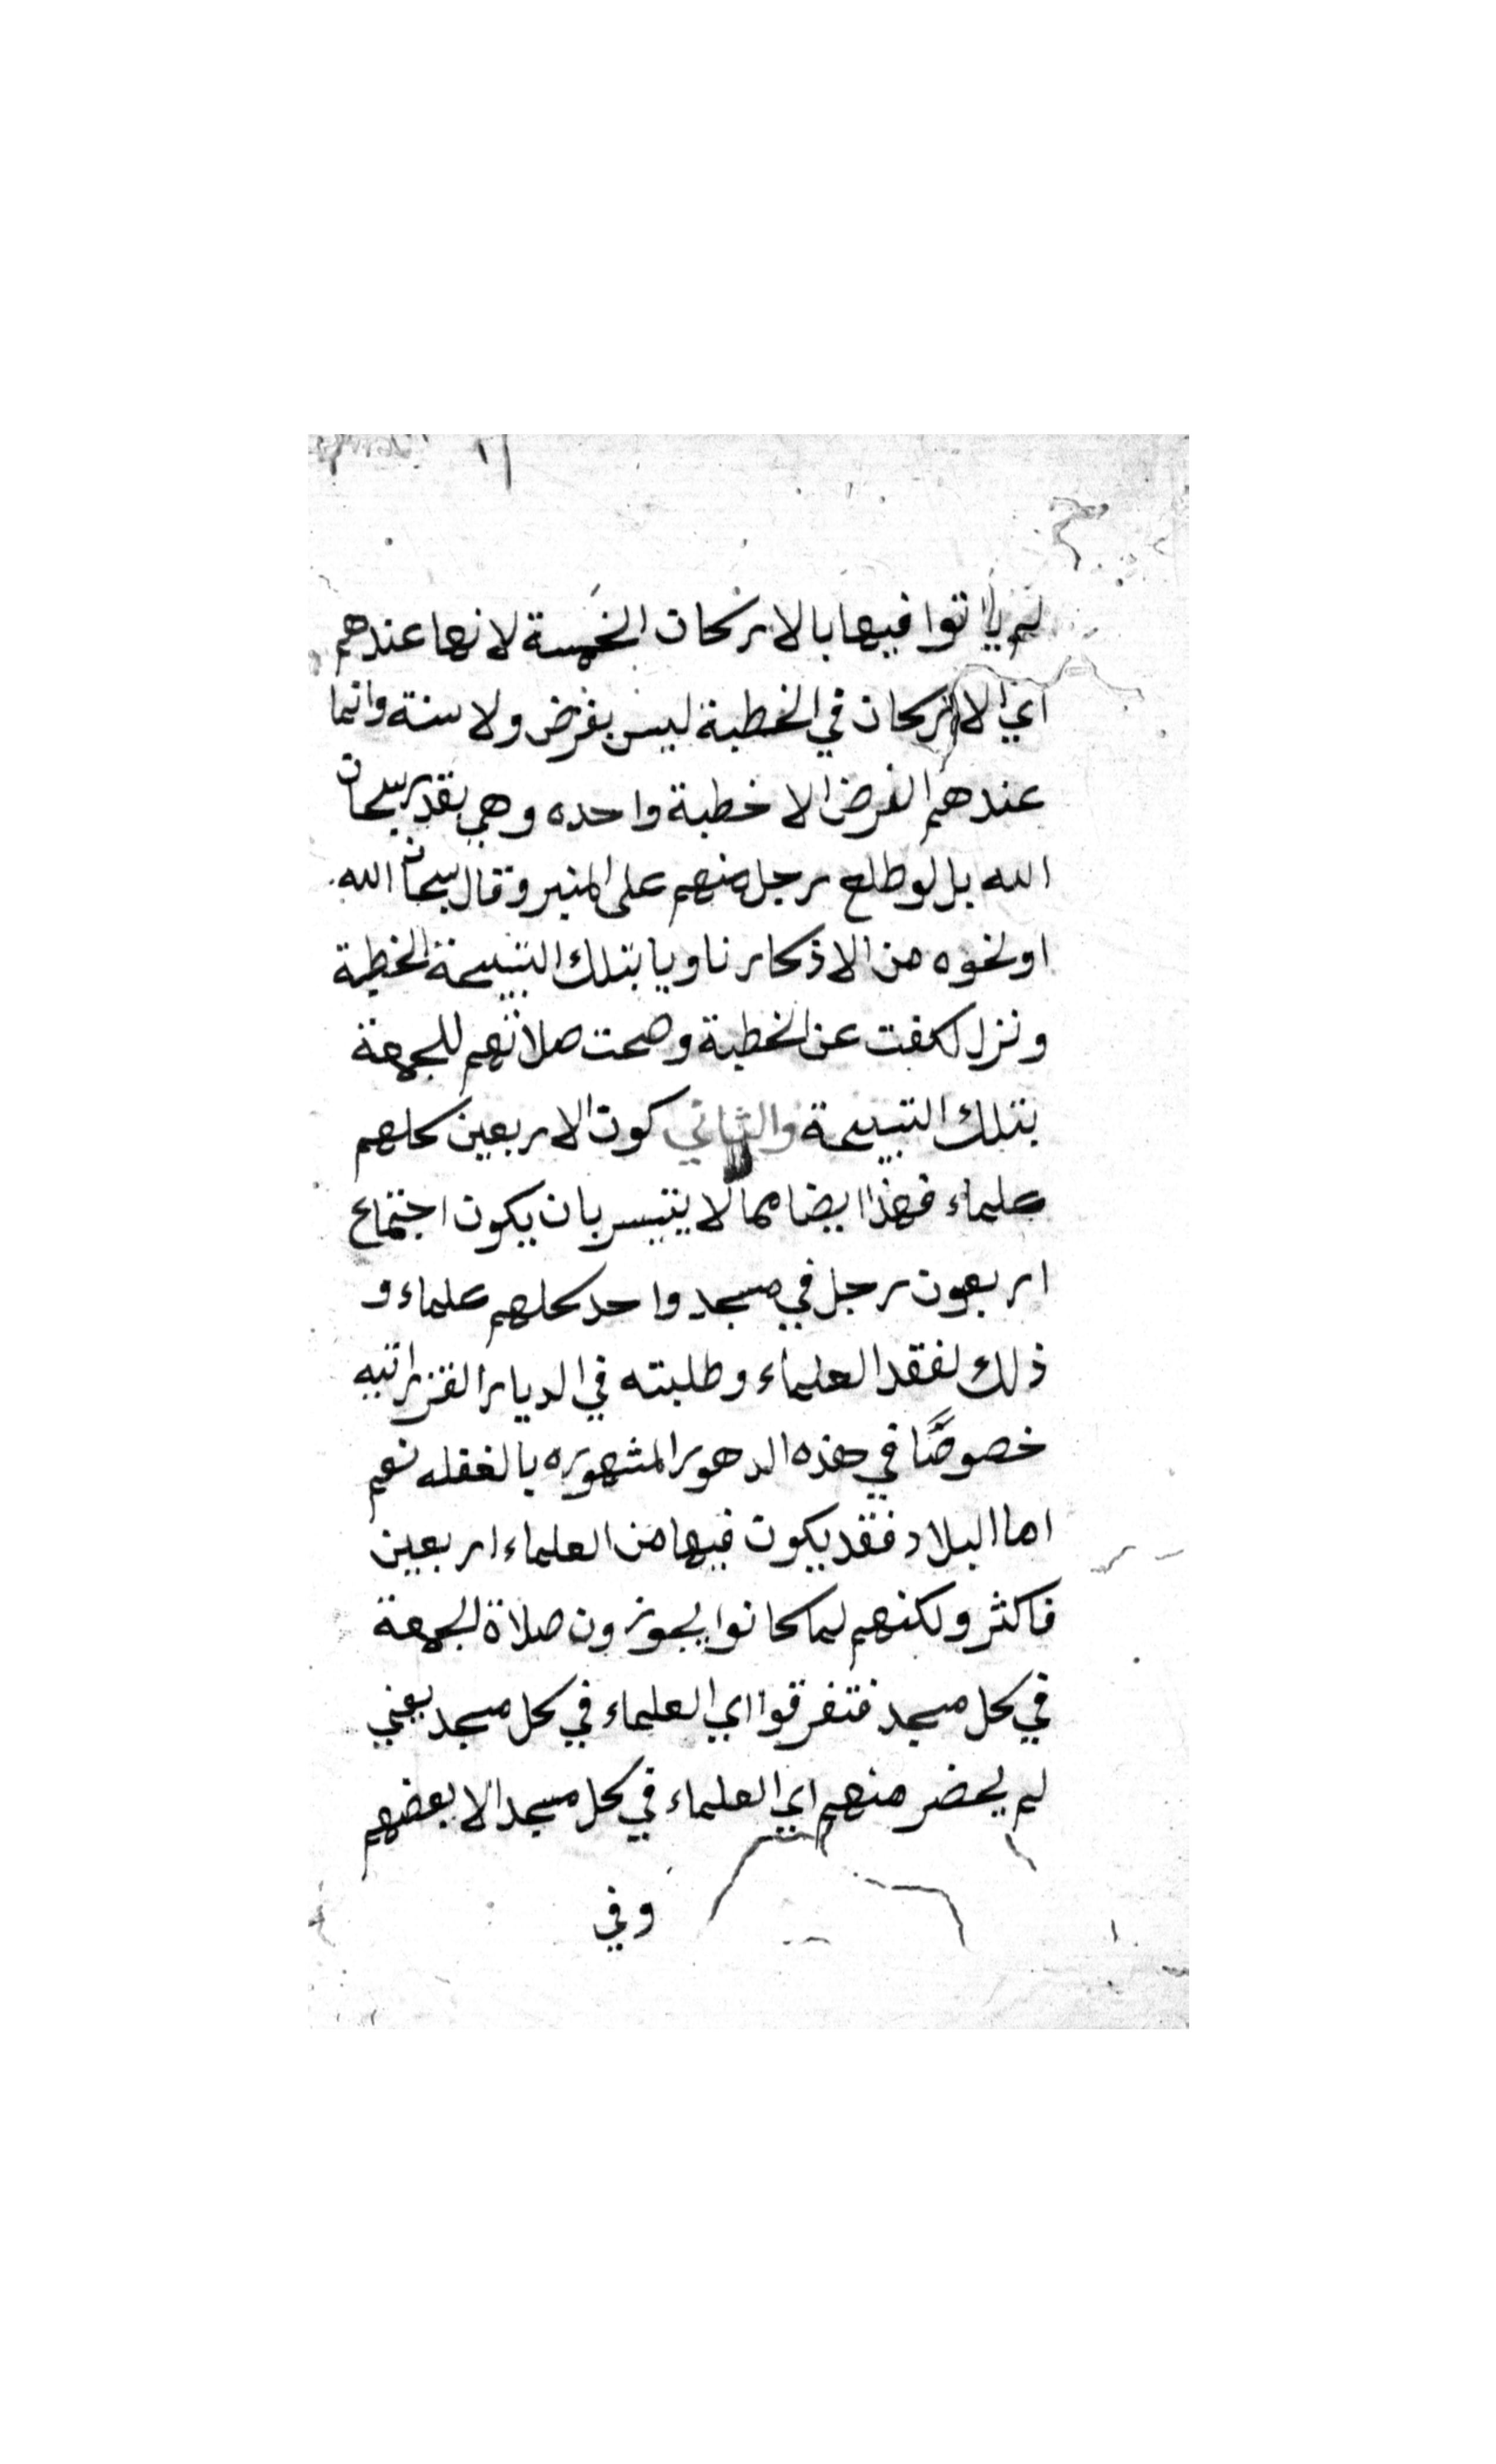 لم ياتوا فيها بالاركان الخمسة لانها عندهم
اي الاركان في الخطبة ليس بفرض ولا سنة وانما
عندهم الفرض الا خطبة واحده وهي بقدر سبحان
الله بل لو طلع رجل منهم على المنبر وقال سبحان الله
او نحوه من الاذكار ناويا بتلك التسبيحة الخطبة
ونزل لكفت عن الخطبة وصحت صلاتهم للجمعة
بتلك التسبيحة والثاني كون الاربعين كلهم
علماء فهذا ايضا مما لا يتيسر بان يكون اجتماع
اربعون رجل في مسجد واحد كلهم علماء و
ذلك لفقد العلماء وطلبته في الديار
خصوصًا في هذه الدهور المشهوره بالغفله نعم
اما البلاد فقد يكون فيها من العلماء اربعين
فاكثر ولكنهم لما كانوا يجوزون صلاة الجمعة
في كل مسجد فتفرقوا اي العلماء في كل مسجد يعني
لم يحضر منهم اي العلماء في كل مسجد الا بعضهم
وفي